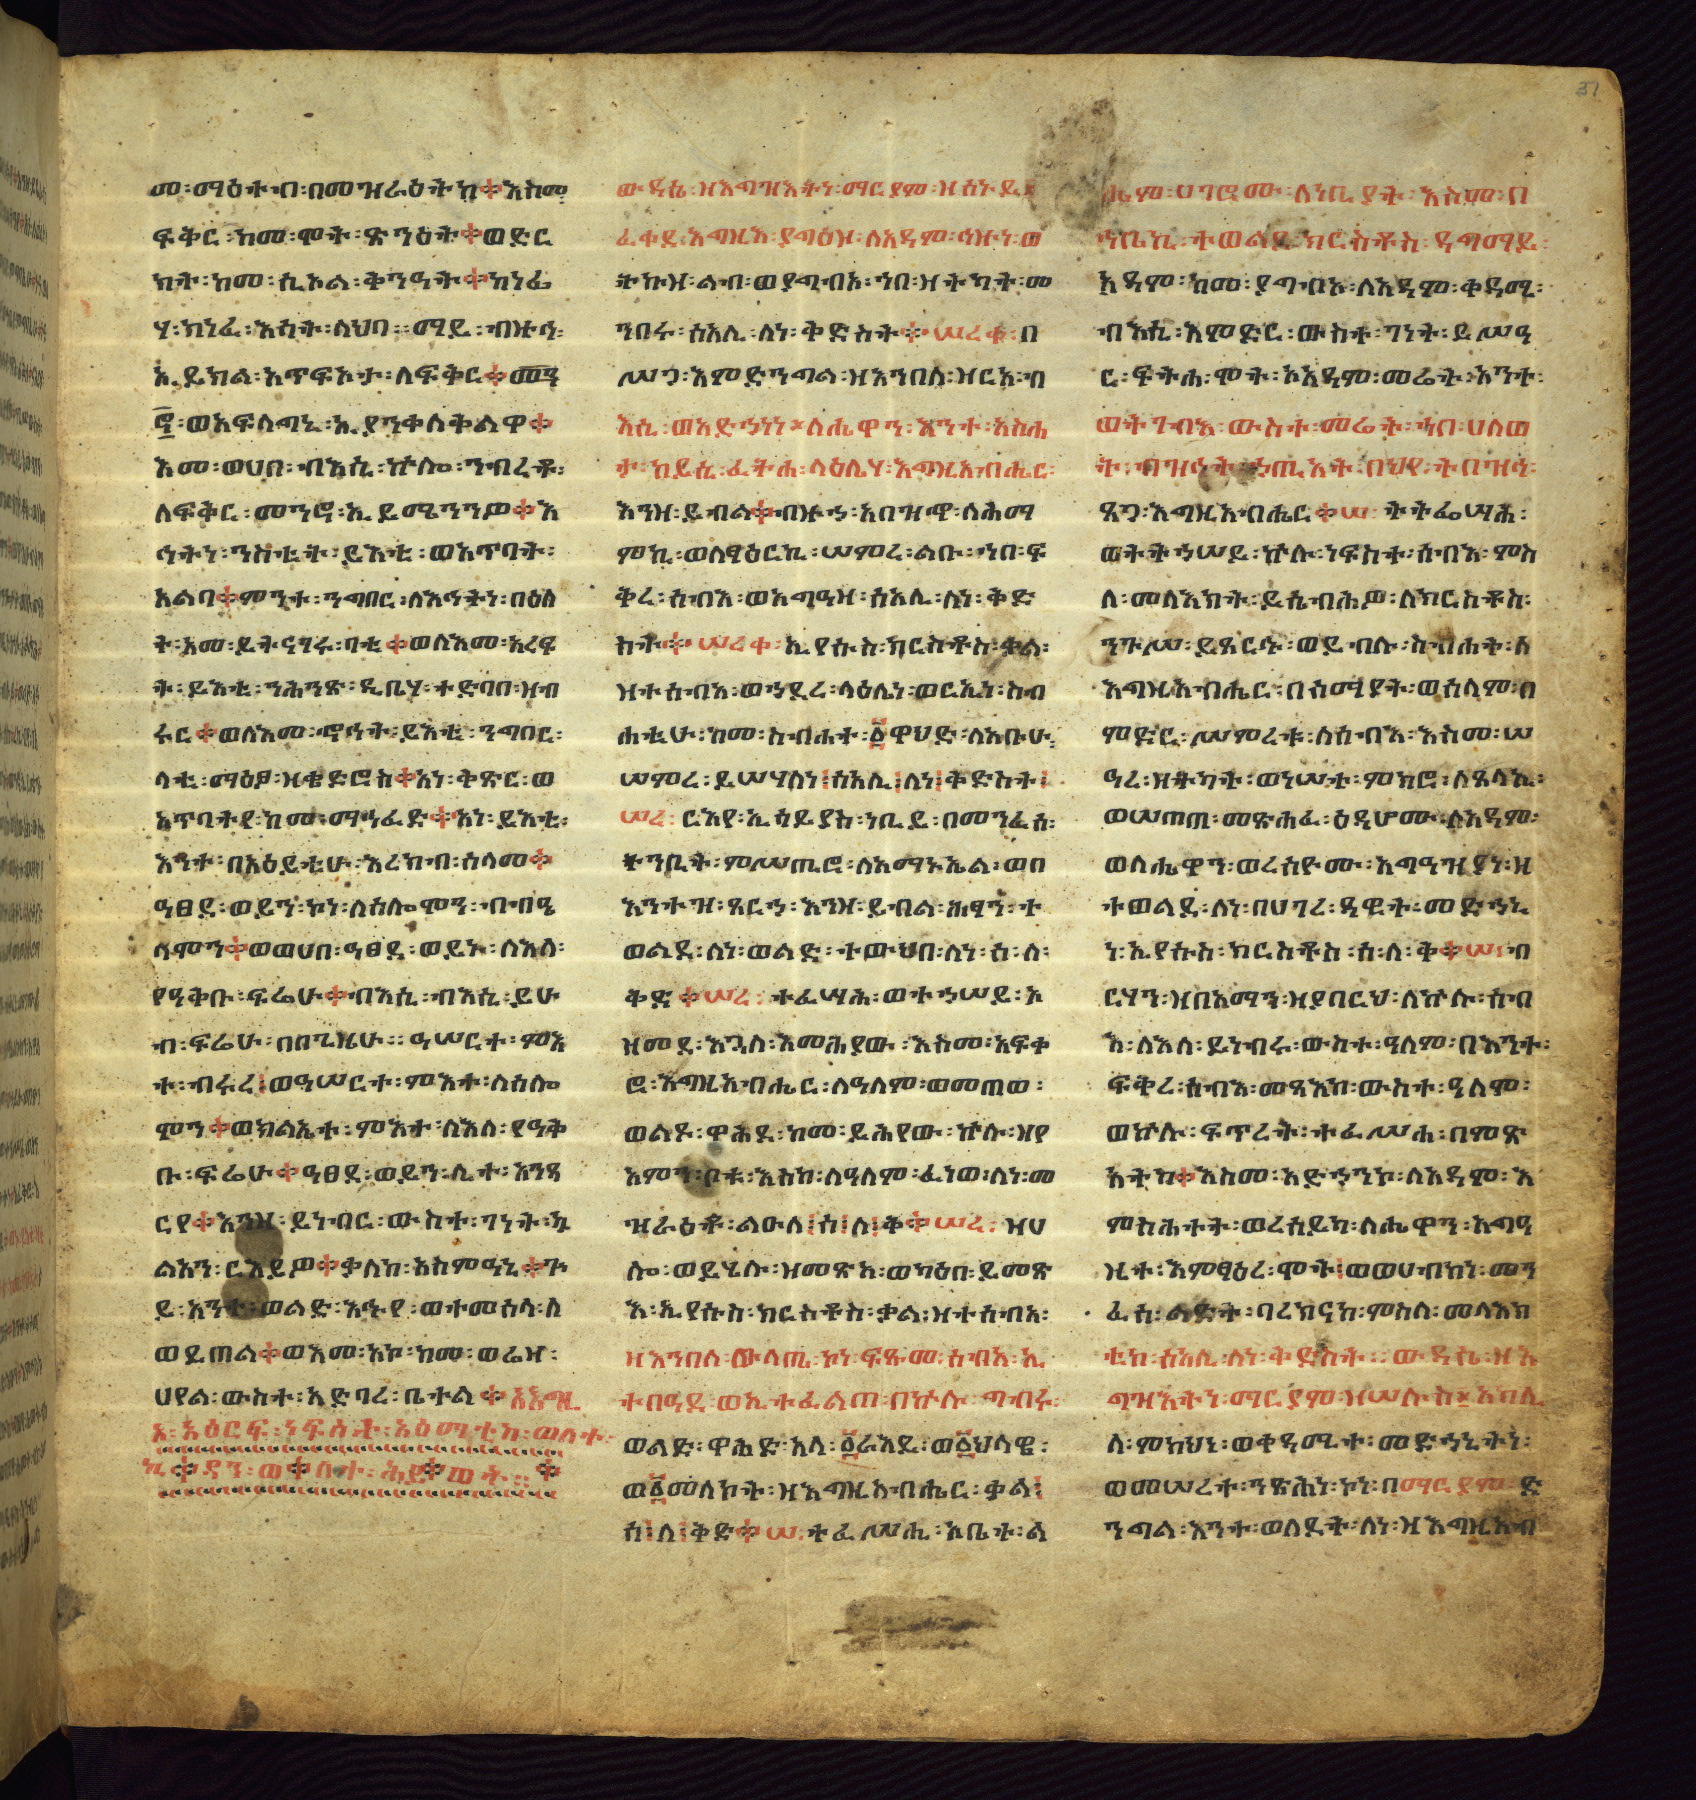 መ፡ማዕተብ፡በመዝራዕትከ፨እስመ፡
ፍቅር፡ከመ፡ሞት፡ጽንዕት፨ወድር
ክት፡ከመ፡ሲኦል፡ቅንዓት፨ክነፊ
ሃ፡ክነፈ፡እሳት፡ላህባ፡፡ማይ፡ብዙኅ፡
ኢይክል፡አጥፍኦታ፡ለፍቅር፨መኃ
ዛ፡ወአፍላግኒ፡ኢያንቀለቅልዋ፨
እመ፡ወሀበ፡ብእሲ፡ኵሎ፡ንብረቶ፡
ለፍቅር፡መንኖ፡ኢይሜንንዎ፨እ
ኅትነ፡ንስቲት፡ይእቲ፡ወአጥባት፡
አልባ፨ምንተ፡ንግበር፡ለእኅትነ፡በዕለ
ት፡እመ፡ይትናገሩ፡ባቲ፨ወለእመ፡አረፍ
ት፡ይእቲ፡ንሕንጽ፡ዲቤሃ፡ተድባበ፡ዘብ
ሩር፨ወለእመ፡ኆኅት፡ይእቲ፡ንግበር፡
ላቲ፡ማዕፆ፡ዘቄድሮስ፨አነ፡ቅጽር፡ወ
አጥባትየ፡ከመ፡ማኅፈድ፨አነ፡ይእቲ፡
እንተ፡በአዕይቲሁ፡እረክብ፡ሰላመ፨
ዓፀደ፡ወይን፡ኮነ፡ለሰሎሞን፡በብዔ
ላሞን፨ወወሀበ፡ዓፀደ፡ወይኑ፡ለእለ፡
የዓቅቡ፡ፍሬሁ፨ብእሲ፡ብእሲ፡ይሁ
ብ፡ፍሬሁ፡በበጊዜሁ፡፡ዓሠርተ፡ምእ
ተ፡ብሩረ፡ወዓሠርተ፡ምእተ፡ለሰሎ
ሞን፨ወክልኤተ፡ምእተ፡ለእለ፡የዓቅ
ቡ፡ፍሬሁ፨ዓፀደ፡ወይን፡ሊተ፡አንጻ
ርየ፨እንዘ፡ይነብር፡ውስተ፡ገነት፡ካ
ልእን፡ርእይዎ፨ቃለከ፡አስምዓኒ፨ጕ
ይ፡አንተ፡ወልድ፡እኁየ፡ወተመሰላ፡ለ
ወይጠል፨ወእመ፡አኮ፡ከመ፡ወሬዛ፡
ሀየል፡ውስተ፡አድባረ፡ቤተል፨እእግዚ
አ፡አዕርፍ፡ነፍስት፡አዕማተከ፡ወለተ፡
ኪዳን፡ወ
ውዳሴ፡ዘእግዝእትነ፡ማርያም፡ዘሰኑይ፡
ፈቀደ፡እግዚእ፡ያግዕዞ፡ለአዳም፡ኅዙነ፡ወ
ትኩዘ፡ልብ፡ወያግብኦ፡ኀበ፡ዘትካት፡መ
ንበሩ፡ሰአሊ፡ለነ፡ቅድስት፨ሠረቀ፡በ
ሥጋ፡እምድንግል፡ዘእንበለ፡ዘርአ፡ብ
እሲ፡ወአድኀነነ፡ለሔዋን፡እንተ፡አስሐ
ታ፡ከይሲ፡ፈትሐ፡ላዕሌሃ፡እግዚአብሔር፡
እንዘ፡ይብል፨ብዙኀ፡አበዝኆ፡ለሕማ
ምኪ፡ወለፃዕርኪ፡ሠምረ፡ልቡ፡ኀበ፡ፍ
ቅረ፡ሰብእ፡ወአግዓዛ፡ሰአሊ፡ለነ፡ቅድ
ስት፨ሠረቀ፡ኢየሱስ፡ክርስቶስ፡ቃል፡
ዘተሰብአ፡ወኀደረ፡ላዕሌነ፡ወርኢነ፡ስብ
ሐቲሁ፡ከመ፡ስብሐተ፡፩ዋህድ፡ለአቡሁ፡
ሠምረ፡ይሣሃለነ፡ሰአሊ፡ለነ፡ቅድስት፡
ሠረ፡ርእየ፡ኢሳይያስ፡ነቢይ፡በመንፈሰ፡
ትንቢት፡ምሥጢሮ፡ለአማኑኤል፡ወበ
እንተዝ፡ጸርኀ፡እንዘ፡ይብል፡ሕፃን፡ተ
ወልደ፡ለነ፡ወልድ፡ተውህበ፡ለነ፡ሰ፡ለ፡
ቅድ፨ሠረ፡ተፈሣሕ፡ወተኀሠይ፡አ
ዘመደ፡እጓለ፡እመሕያው፡እስመ፡አፍቀ
ሮ፡እግዚአብሔር፡ለዓለም፡ወመጠወ፡
ወልዶ፡ዋሕደ፡ከመ፡ይሕየው፡ኵሉ፡ዘየ
አምን፡ቦቱ፡እስከ፡ለዓለም፡ፈነወ፡ለነ፡መ
ዝራዕቶ፡ልዑለ፡ሰ፡ለ፡ቅ፨ሠረ፡ዘሀ
ሎ፡ወይሄሉ፡ዘመጽአ፡ወካዕበ፡ይመጽ
እ፡ኢየሱስ፡ክርስቶስ፡ቃል፡ዘተሰብአ፡
ዘእንበለ፡ውላጤ፡ኮነ፡ፍጹመ፡ሰብአ፡ኢ
ተበዓደ፡ወኢተፈልጠ፡በኵሉ፡ግብሩ፡
ወልድ፡ዋሕድ፡አላ፡፩ራእይ፡ወ፩ህላዌ፡
ወ፩መለኮት፡ዘእግዚአብሔር፡ቃል፡
ሰ፡ለ፡ቅድ፨ሠ፡ተፈሥሒ፡ኦቤተ፡ል
ሔም፡ሀገሮሙ፡ለነቢያት፡እስመ፡በ
ኀቤኪ፡ተወልደ፡ክርስቶስ፡ዳግማይ፡
አዳም፡ከመ፡ያግብኦ፡ለአዳም፡ቀዳሚ፡
ብእሲ፡እምድር፡ውስተ፡ገነት፡ይሥዓ
ር፡ፍትሐ፡ሞት፡ኦአዳም፡መሬት፡አንተ፡
ወትገብእ፡ውስተ፡መሬት፡ኀበ፡ሀለወ
ት፡ብዝኅት፡ኃጢአት፡በህየ፡ትበዝኅ፡
ጸጋ፡እግዚአብሔር፨ሠ፡ትትፌሣሕ፡
ወትትኀሠይ፡ኵሉ፡ነፍስተ፡ሰብእ፡ምስ
ለ፡መላእክት፡ይሴብሕዎ፡ለክርስቶስ፡
ንጉሥ፡ይጸርኁ፡ወይብሉ፡ስብሐት፡ለ
እግዚአብሔር፡በሰማያት፡ወሰላም፡በ
ምድር፡ሥምረቱ፡ለሰብእ፡እስመ፡ሠ
ዓረ፡ዘትካት፡ወነሠተ፡ምክሮ፡ለጸላኢ፡
ወሠጠጠ፡መጽሐፈ፡ዕዳሆሙ፡ለአዳም፡
ወለሔዋን፡ወረሰዮሙ፡አግዓዝያነ፡ዘ
ተወልደ፡ለነ፡በሀገረ፡ዳዊት፡መድኀኒ
ነ፡ኢየሱስ፡ክርስቶስ፡ሰ፡ለ፡ቅ፨ሠ፡ብ
ርሃን፡ዘበአማን፡ዘያበርህ፡ለኵሉ፡ሰብ
እ፡ለእለ፡ይነብሩ፡ውስተ፡ዓለም፡በእንተ፡
ፍቅረ፡ሰብእ፡መጻእከ፡ውስተ፡ዓለም፡
ወኵሉ፡ፍጥረት፡ተፈሥሐ፡በምጽ
አትከ፨እስመ፡አድኀንኮ፡ለአዳም፡እ
ምስሕተት፡ወረሰይካ፡ለሔዋን፡አግዓ
ዚተ፡እምፃዕረ፡ሞት፡ወወሀብከነ፡መን
ፈሰ፡ልደት፡ባረክናከ፡ምስለ፡መላእክ
ቲከ፡ሰአሊ፡ለነ፡ቅድስት፡፡ውዳሴ፡ዘእ
ግዝእትነ፡ማርያም፡ዘሠሉስ፡አክሊ
ለ፡ምክህነ፡ወቀዳሚተ፡መድኀኒትነ፡
ወመሠረተ፡ንጽሕነ፡ኮነ፡በማርያም፡ድ
ንግል፡እንተ፡ወለደት፡ለነ፡ዘእግዚአብ